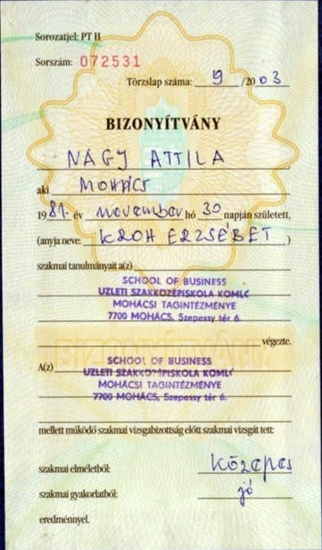 Sorozatjel: PT H
Sorszám: 072531
Törzslap száma: 9 /2003
BIZONYÍTVÁNY
NAGY ATTILA
aki MOHÁCS
1981. év november hó 30 napján született,
(anyja neve: KROH ERZSÉBET )
szakmai tanulmányait a(z)
SCHOOL OF BUSINESS
UZLETI SZAKKÖZÉPISKOLA KOMLÓ
MOHÁCSI TAGINTÉZMÉNYE
7700 MOHÁCS, Szepessy tér 6.
végezte.
BIZONYÍTVÁNY
A(z)
SCHOOL OF BUSINESS
UZLETI SZAKKÖZÉPISKOLA KOMLÓ
MOHÁCSI TAGINTÉZMÉNYE
7700 MOHÁCS, Szepessy tér 6.
mellett működő szakmai vizsgabizottság előtt szakmai vizsgát tett:
szakmai elméletből: közepes
szakmai gyakorlatból: jó
eredménnyel.